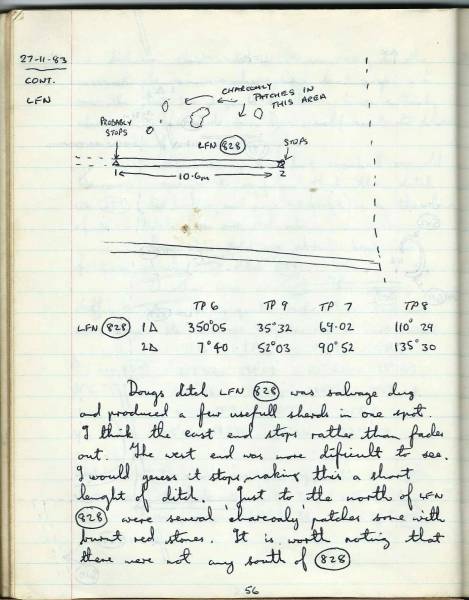 27-11-83
CONT.
LFN
CHARCOALY
PATCHES IN
THIS AREA
PROBABLY
STOPS
LFN 828
STOPS
1 10.6m 2
TP 6 TP 9 TP 7 TP 8
LFN 828 1Δ 350°05 35°32 69.02 110° 29
2Δ 7°40 52°03 90°52 135°30
Dougs ditch LFN 828 was salvage dug
and produced a few usefull sherds in one spot.
I think the east end stops rather than fades
out. The west end was more dificult to see.
I would guess it stops making this a short
lenght of ditch. Just to the north of LFN
828 were several 'charcoaly' patches some with
burnt red stones. It is worth noting that
there were not any south of 828
56